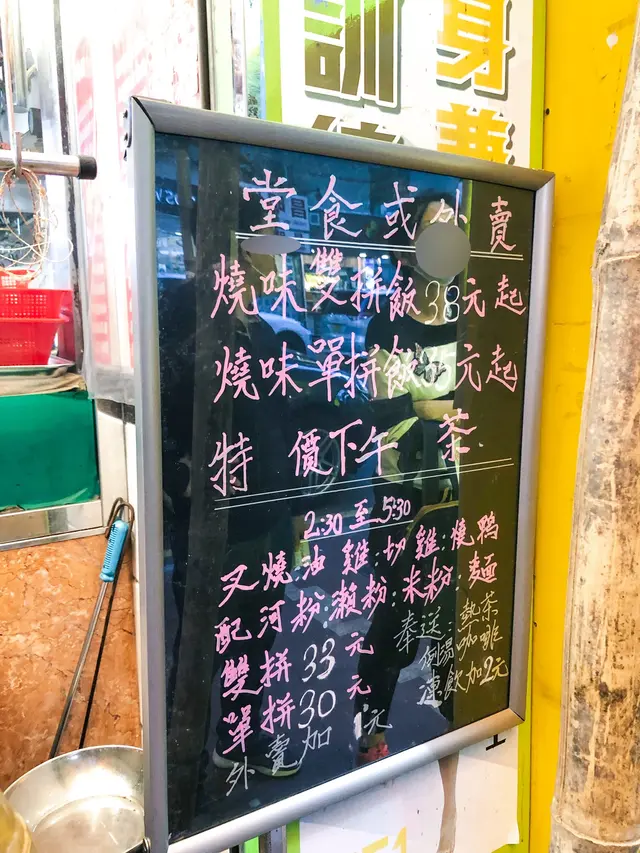 訓 身
堂食或外賣
燒味雙拼飯38元起
燒味單拼飯35元起
特價下午茶
2:30至5:30
叉燒:油雞:切雞:燒鴨
配河粉:瀨粉:米粉:麵
雙拼33元
單拼30元
外賣加1元
奉送:熱茶
例湯咖啡
凍飲加2元